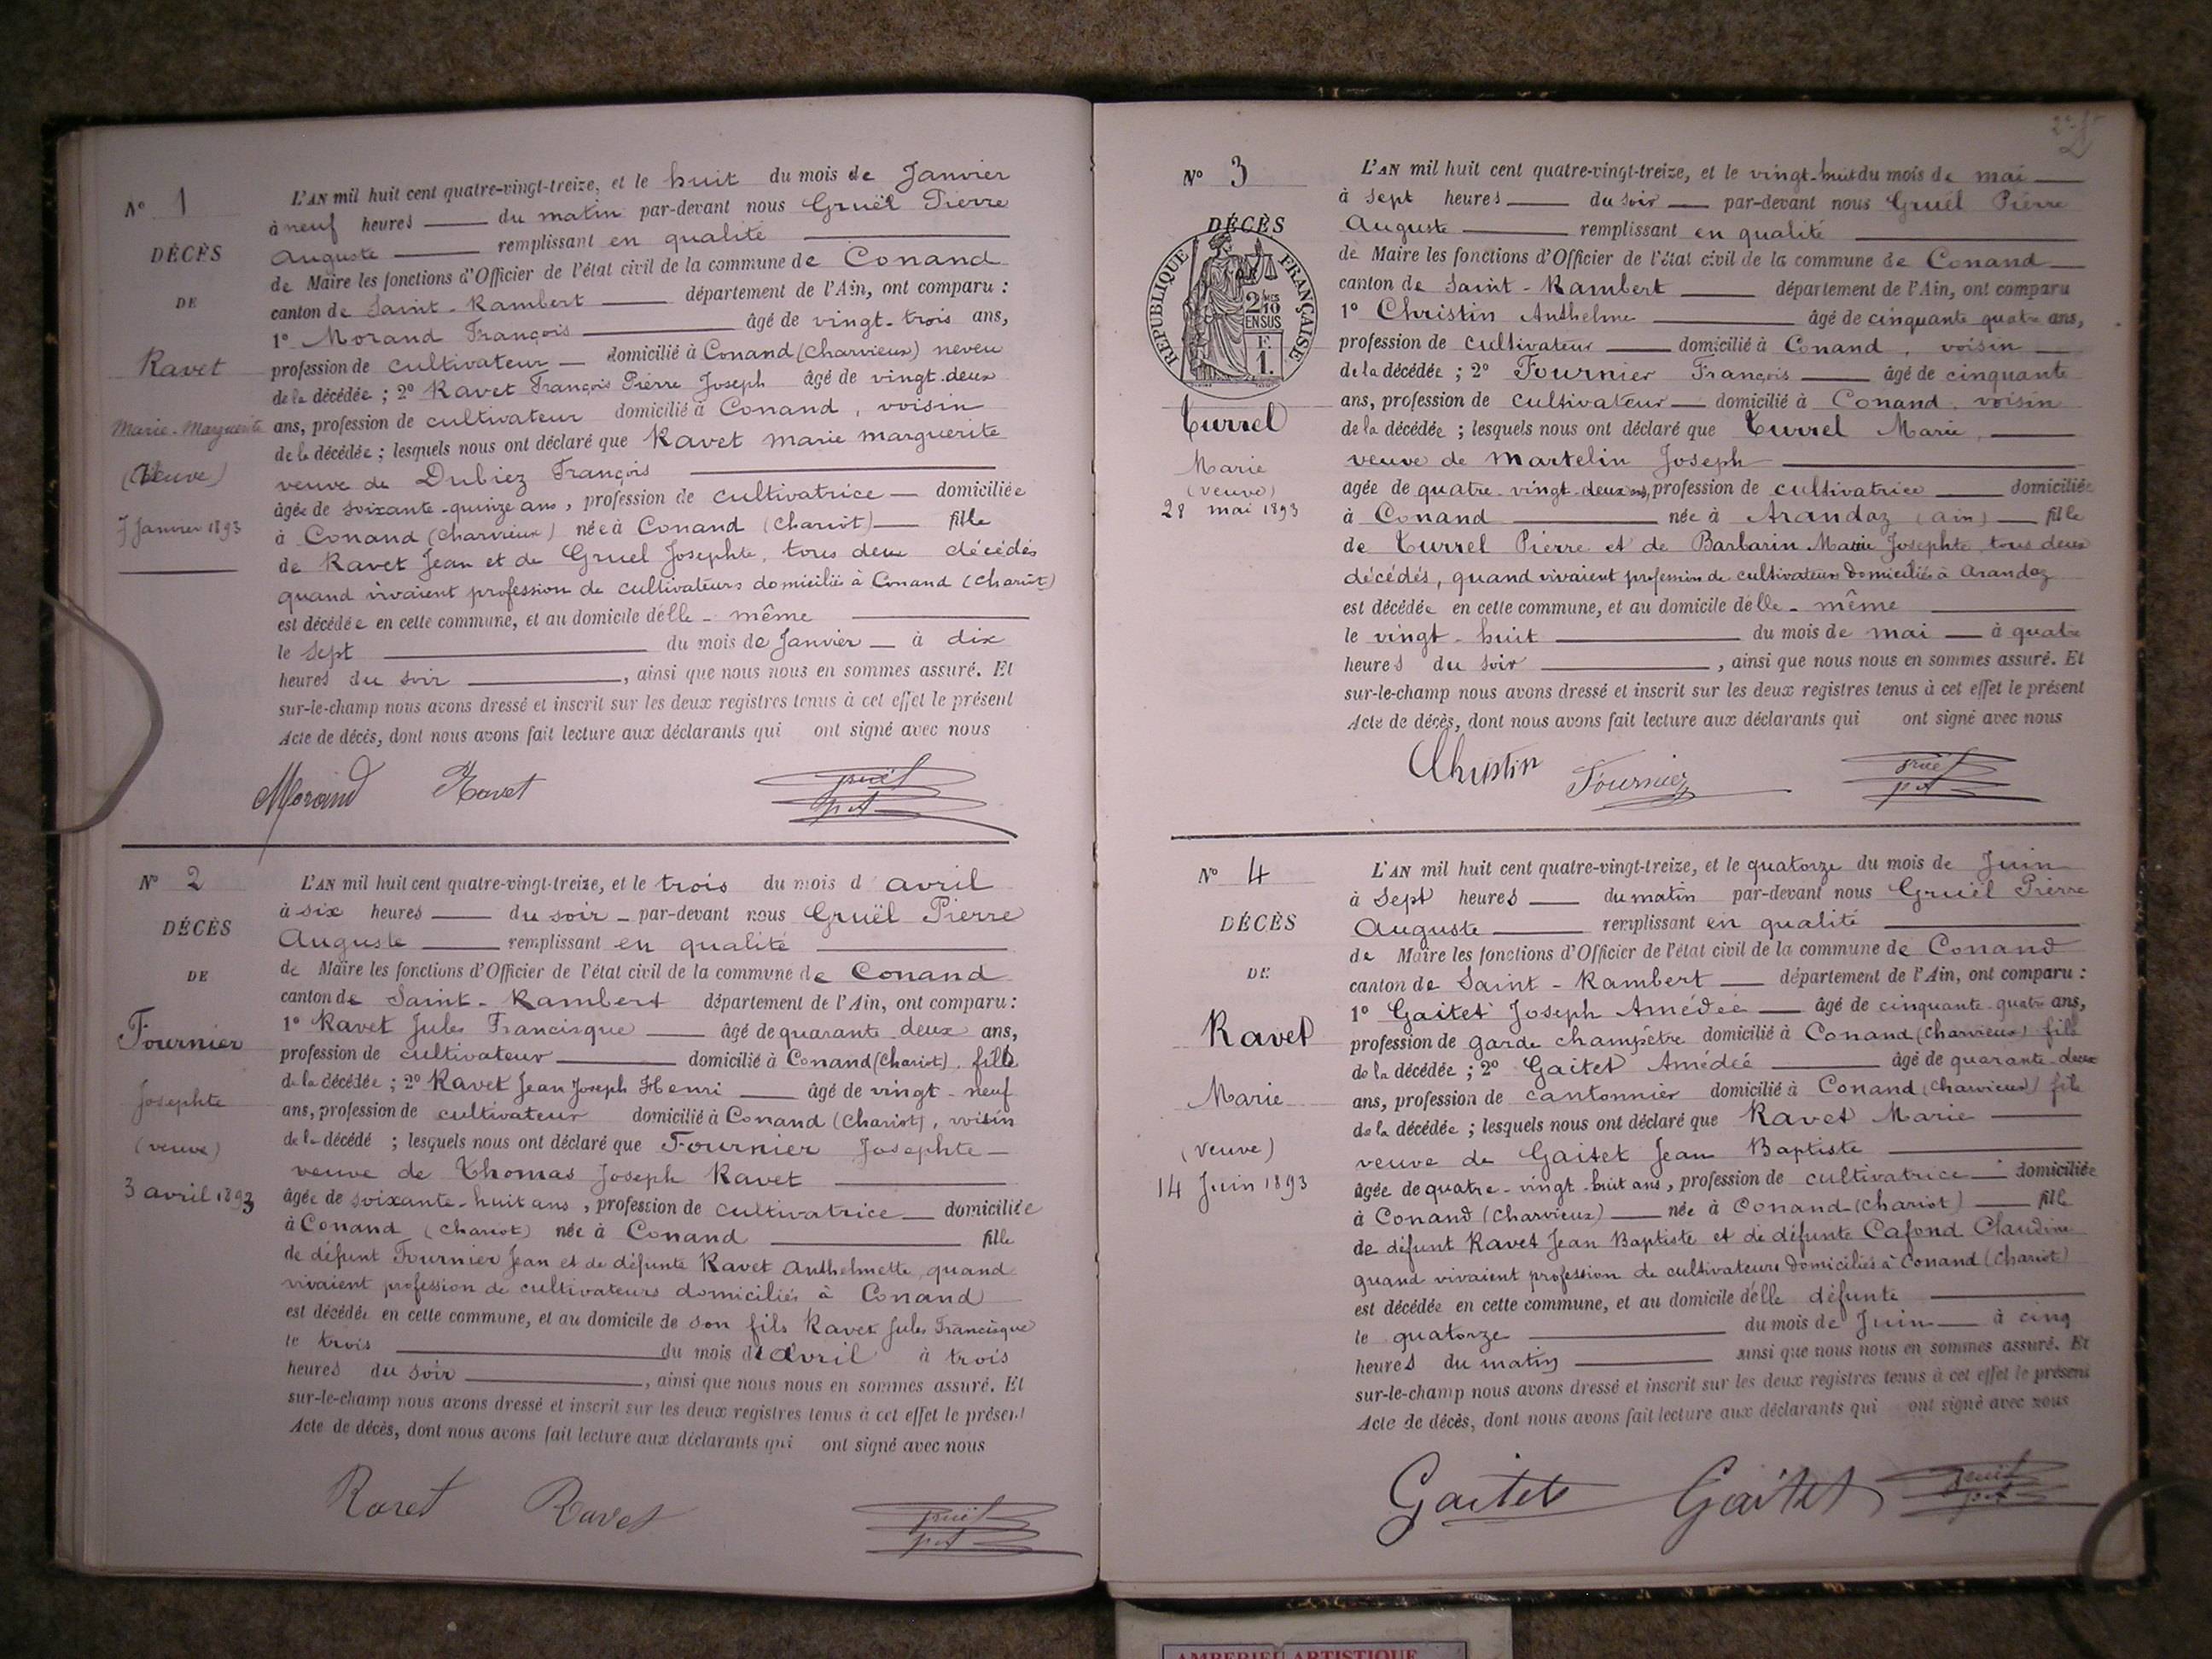 N° 1
DÉCÈS
DE
Ravet
Marie-Marguerite
(Veuve)
7 Janvier 1893
L'AN mil huit cent quatre-vingt-treize, et le huit du mois de Janvier
à neuf heures du matin par-devant nous Gruël Pierre
Auguste remplissant en qualité
de Maire les fonctions d'Officier de l'état civil de la commune de Conand
canton de Saint-Rambert département de l'Ain, ont comparu :
1° Morand François âgé de vingt-trois ans,
profession de cultivateur domicilié à Conand (Charvieux) neveu
de la décédée ; 2° Ravet François Pierre Joseph âgé de vingt-deux
ans, profession de cultivateur domicilié à Conand, voisin
de la décédée ; lesquels nous ont déclaré que Ravet marie marguerite
veuve de Dubiez François
âgée de soixante-quinze ans, profession de cultivatrice domiciliée
à Conand (Charvieux) née à Conand (Chariot) fille
de Ravet Jean et de Gruel Josephte, tous deux décédés
quand vivaient profession de cultivateurs domiciliés à Conand (Chariot)
est décédée en cette commune, et au domicile d'elle-même
le sept du mois de Janvier à dix
heures du soir, ainsi que nous nous en sommes assuré. Et
sur-le-champ nous avons dressé et inscrit sur les deux registres tenus à cet effet le présent
Acte de décès, dont nous avons fait lecture aux déclarants qui ont signé avec nous
Morand Ravet Gruël
N° 2
DÉCÈS
DE
Fournier
Josephte
(veuve)
3 avril 1893
L'AN mil huit cent quatre-vingt-treize, et le trois du mois d'avril
à six heures du soir par-devant nous Gruël Pierre
Auguste remplissant en qualité
de Maire les fonctions d'Officier de l'état civil de la commune de Conand
canton de Saint-Rambert département de l'Ain, ont comparu :
1° Ravet Jules Francisque âgé de quarante deux ans,
profession de cultivateur domicilié à Conand (Chariot), fils
de la décédée ; 2° Ravet Jean Joseph Henri âgé de vingt-neuf
ans, profession de cultivateur domicilié à Conand (Chariot), voisin
de la décédé ; lesquels nous ont déclaré que Fournier Josephte
veuve de Thomas Joseph Ravet
âgée de soixante-huit ans, profession de cultivatrice domiciliée
à Conand (Chariot) née à Conand fille
de défunt Fournier Jean et de défunte Ravet Anthelmette, quand
vivaient profession de cultivateurs domiciliés à Conand
est décédée en cette commune, et au domicile de son fils Ravet Jules Francisque
le trois du mois d'avril à trois
heures du soir, ainsi que nous nous en sommes assuré. Et
sur-le-champ nous avons dressé et inscrit sur les deux registres tenus à cet effet le présent
Acte de décès, dont nous avons fait lecture aux déclarants qui ont signé avec nous
Ravet Ravet Gruël
N° 3
DÉCÈS
DE
REPUBLIQUE FRANÇAISE
2/10 EN SUS
F. 1.
Turrel
Marie
(veuve)
28 mai 1893
L'AN mil huit cent quatre-vingt-treize, et le vingt-huit du mois de mai
à sept heures du soir par-devant nous Gruël Pierre
Auguste remplissant en qualité
de Maire les fonctions d'Officier de l'état civil de la commune de Conand
canton de Saint-Rambert département de l'Ain, ont comparu
1° Christin Anthelme âgé de cinquante quatre ans,
profession de cultivateur domicilié à Conand, voisin
de la décédée ; 2° Fournier François âgé de cinquante
ans, profession de cultivateur domicilié à Conand, voisin
de la décédée ; lesquels nous ont déclaré que Turrel Marie,
veuve de Martelin Joseph
agée de quatre-vingt-deux ans, profession de cultivatrice domiciliée
à Conand née à Arandaz (ain) fille
de Turrel Pierre et de Barbarin Marie Josephte, tous deux
décédés, quand vivaient profession de cultivateurs domiciliés à Arandaz
est décédée en cette commune, et au domicile d'elle-même
le vingt-huit du mois de mai à quatre
heures du soir, ainsi que nous nous en sommes assuré. Et
sur-le-champ nous avons dressé et inscrit sur les deux registres tenus à cet effet le présent
Acte de décès, dont nous avons fait lecture aux déclarants qui ont signé avec nous
Christin Fournier Gruël
N° 4
DÉCÈS
DE
Ravet
Marie
(veuve)
14 Juin 1893
L'AN mil huit cent quatre-vingt-treize, et le quatorze du mois de Juin
à sept heures du matin par-devant nous Gruël Pierre
Auguste remplissant en qualité
de Maire les fonctions d'Officier de l'état civil de la commune de Conand
canton de Saint-Rambert département de l'Ain, ont comparu :
1° Gaitet Joseph Amédée âgé de cinquante-quatre ans,
profession de garde champêtre domicilié à Conand (Charvieux) fils
de la décédée ; 2° Gaitet Amédée âgé de quarante-deux
ans, profession de cantonnier domicilié à Conand (Charvieux) fils
de la décédée ; lesquels nous ont déclaré que Ravet Marie
veuve de Gaitet Jean Baptiste
âgée de quatre-vingt-huit ans, profession de cultivatrice domiciliée
à Conand (Charvieux) née à Conand (Chariot) fille
de défunt Ravet Jean Baptiste et de défunte Cafond Claudine
quand vivaient profession de cultivateurs domiciliés à Conand (Chariot)
est décédée en cette commune, et au domicile d'elle défunte
le quatorze du mois de Juin à cinq
heures du matin ainsi que nous nous en sommes assuré. Et
sur-le-champ nous avons dressé et inscrit sur les deux registres tenus à cet effet le présent
Acte de décès, dont nous avons fait lecture aux déclarants qui ont signé avec nous
Gaitet Gaitet Gruël
AMBERIEU ARTISTIQUE